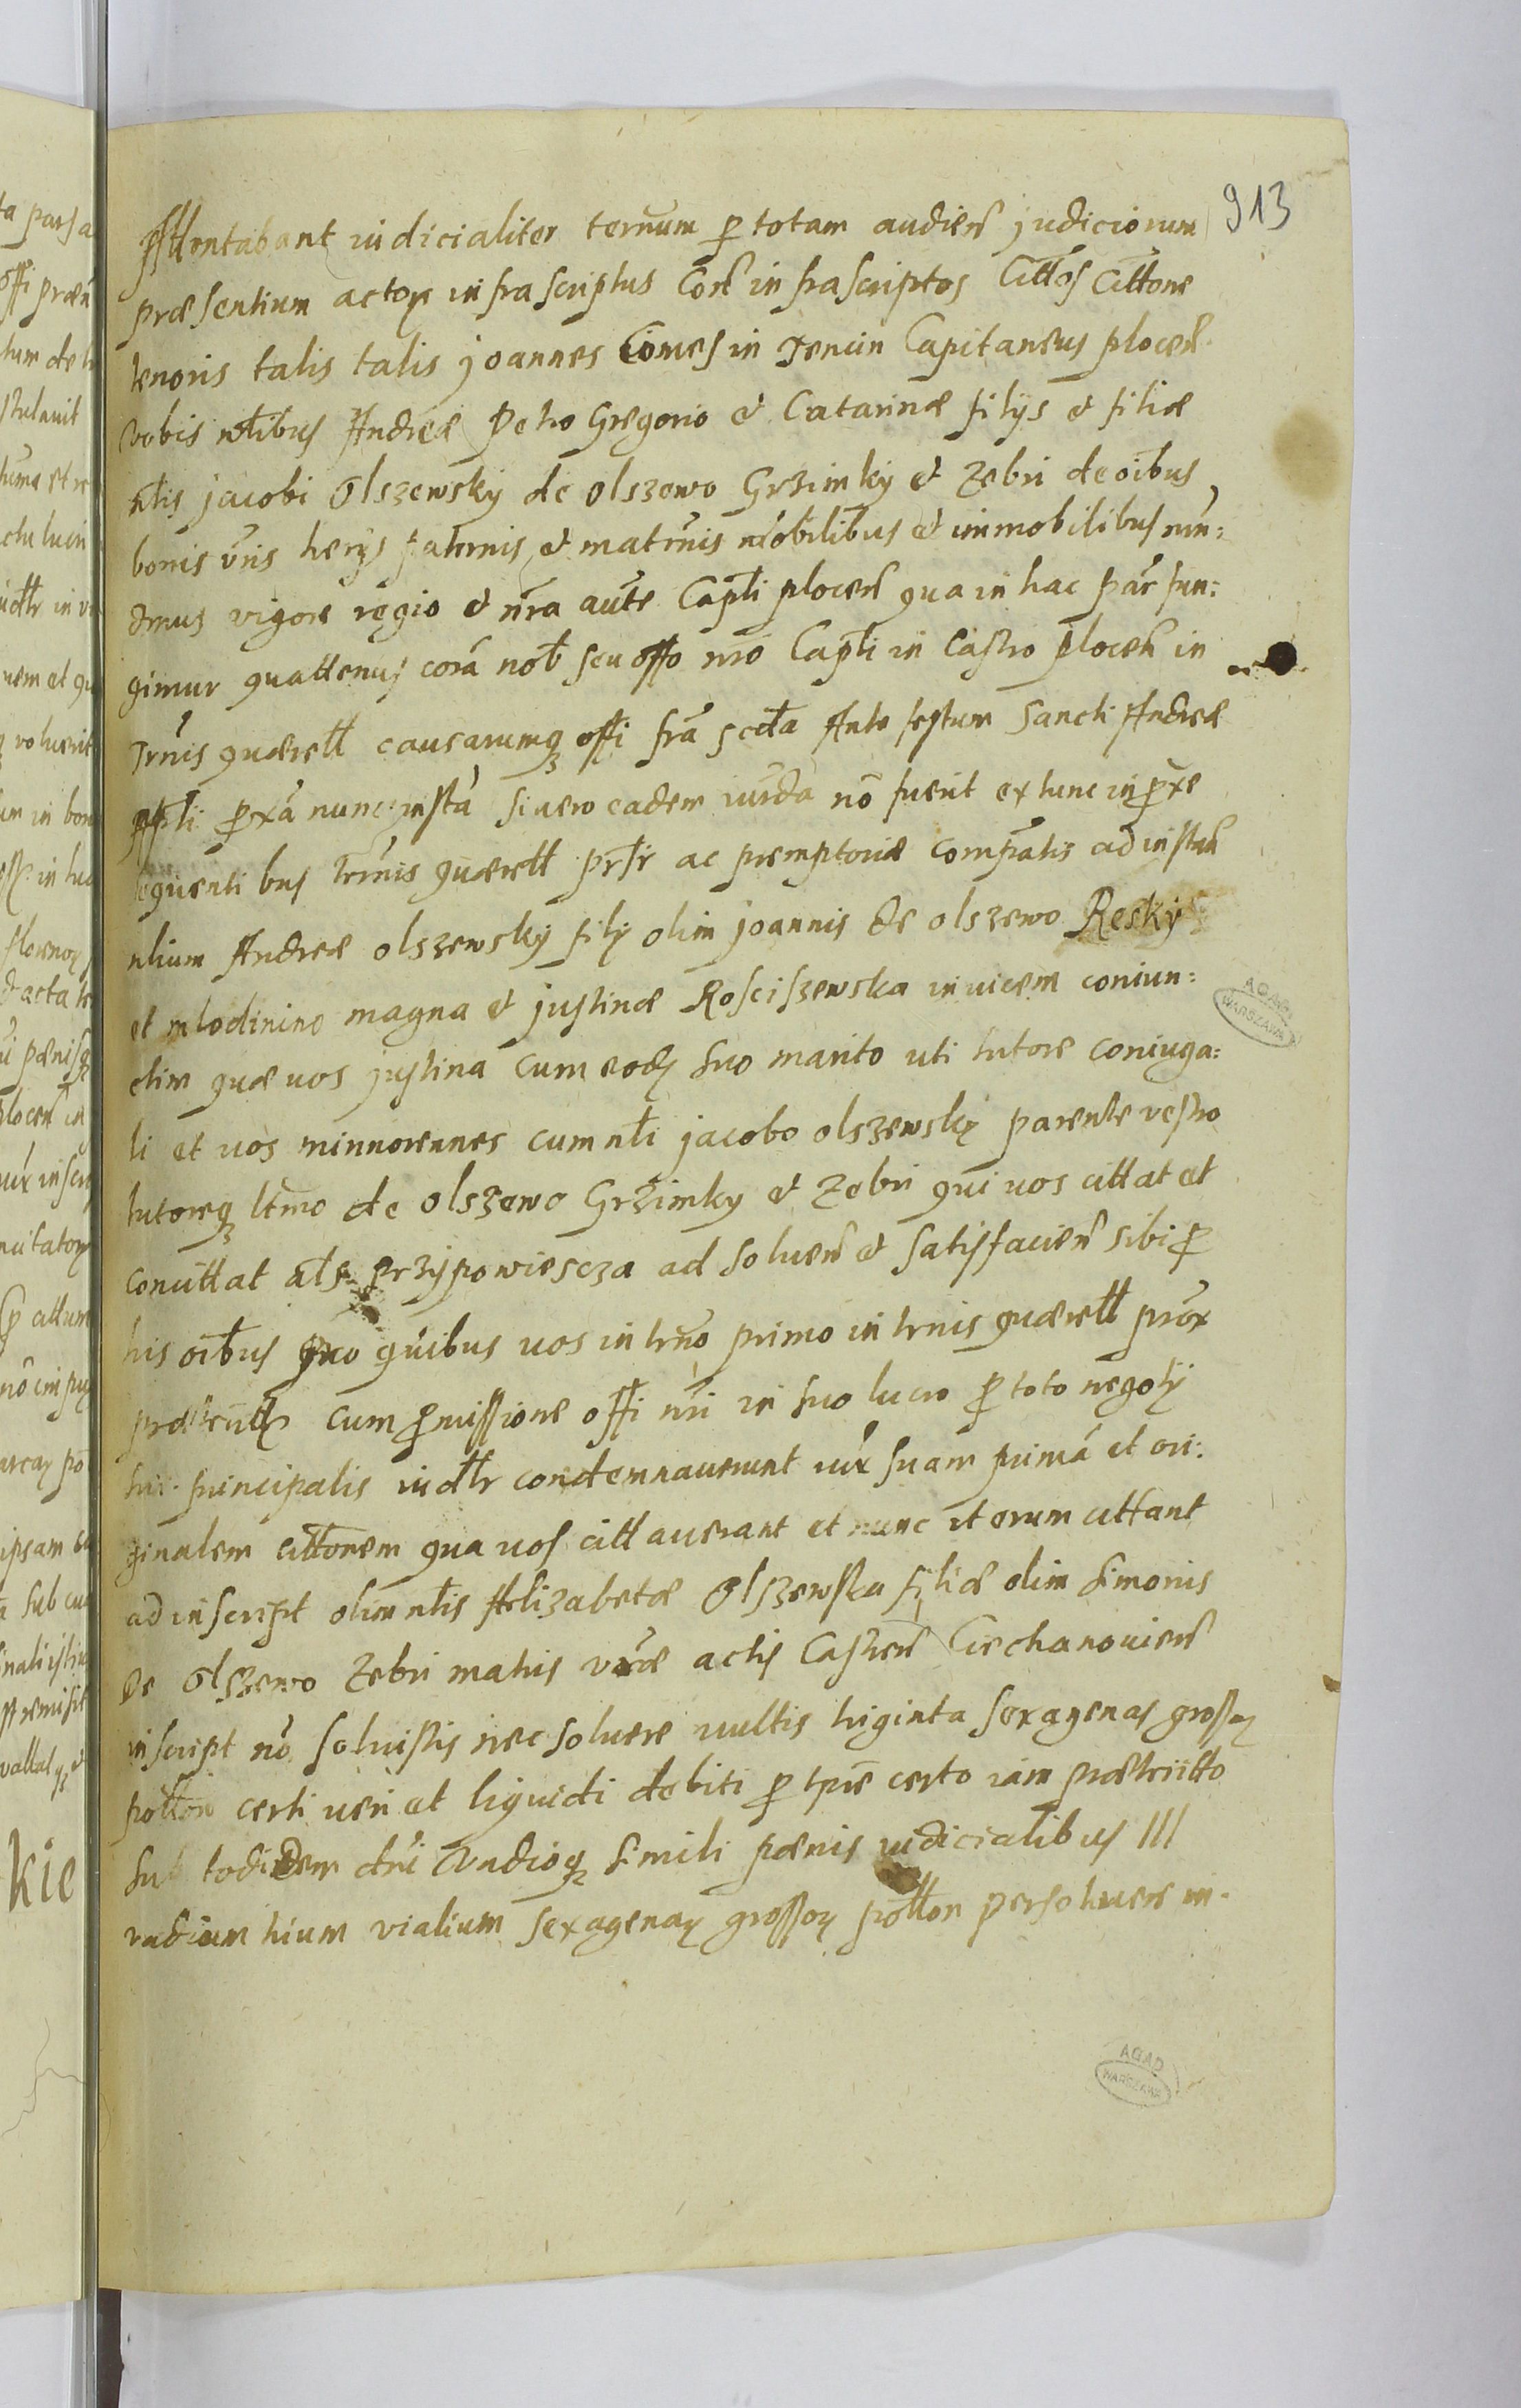 913
Attentabant iudicialiter ternum p totam audień judiciorum
præsentium actor infrascriptus Corā infrascriptos Cittos Cittone
tenoris talis talis joannes Comes in Tencin Capitaneus plocen̄.
vobis nt̄libus Andreæ Petro Gregorio et Catarinæ filÿs et filiæ
nt̄lis jacobi Olszewsky de Olszewo Grzimky et Zebri de oib̄us
bonis vris herÿs paternis et maternis mobilibus et immobilibus mn̄:
dmus vigore regio et nra aut̄e Capt̄i plocen̄ qua in hac par̄ fun:
gimur quattenus corā nob̄ seu offo nrō Capt̄i in Castro plocen̄ in
Trn̄is quærell causarumq offi frā scda Ante festum Sancti Andreæ
Apt̄li pxā nunc instā si uero eadem iurda nō fuerit extunc in pxe
sequenti bus trmis quærell pr̄tr ac premptoriæ compatis ad instan̄
ntlium Andreæ olszewsky filÿ olim joannis de olszewo Resky
et mlodinino magna et justinæ Rosciszewska inuicem coniun:
ctim quæ uos justina cum eod suo marito uti tutore coniuga:
li et uos minnorennes cum ntli jacobo olszewsky parente vestro
tutoreq ltmo de olszewo Grzimky et Zebri qui uos cittat et
concittat als przypowiescza ad soluen̄ et satisfacien̄ sibi p
his oib̄us pro quibus uos in trnō primo in trnis quærell prox
præteritt cum pmissione offi nri in suo lucro p toto negotÿ
sui principalis iudtr condemnauerunt iux suam primā et ori:
ginalem cittonem qua uos cittauerant et nunc iterum cittant
ad inscript olim ntlis Aelizabetæ Olszewska filiæ olim Simonis
de Olszewo Zebri matris vræ actis Castren̄ Ciechanouien̄
inscript nō soluistis nec soluere uultis triginta sexagenas grossor
potton certi ueri et liquidi debiti p tpre certo iam præteritto
sub todidem dni vadioq simili pænis iudicialibus III
vadium trium vialium sexagenar grossor potton persoluere in-
AGAD
WARSZAWA
AGAD
WARSZAWA